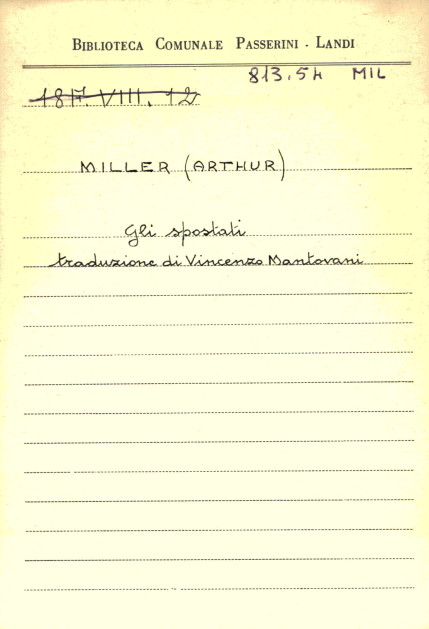 BIBLIOTECA COMUNALE PASSERINI - LANDI
813.54 MIL
18F. VIII. 12
MILLER (ARTHUR)
Gli spostati
traduzione di Vincenzo Mantovani